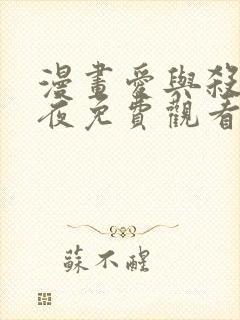 漫畫愛與殺
夜免費觀看
蘇不醒